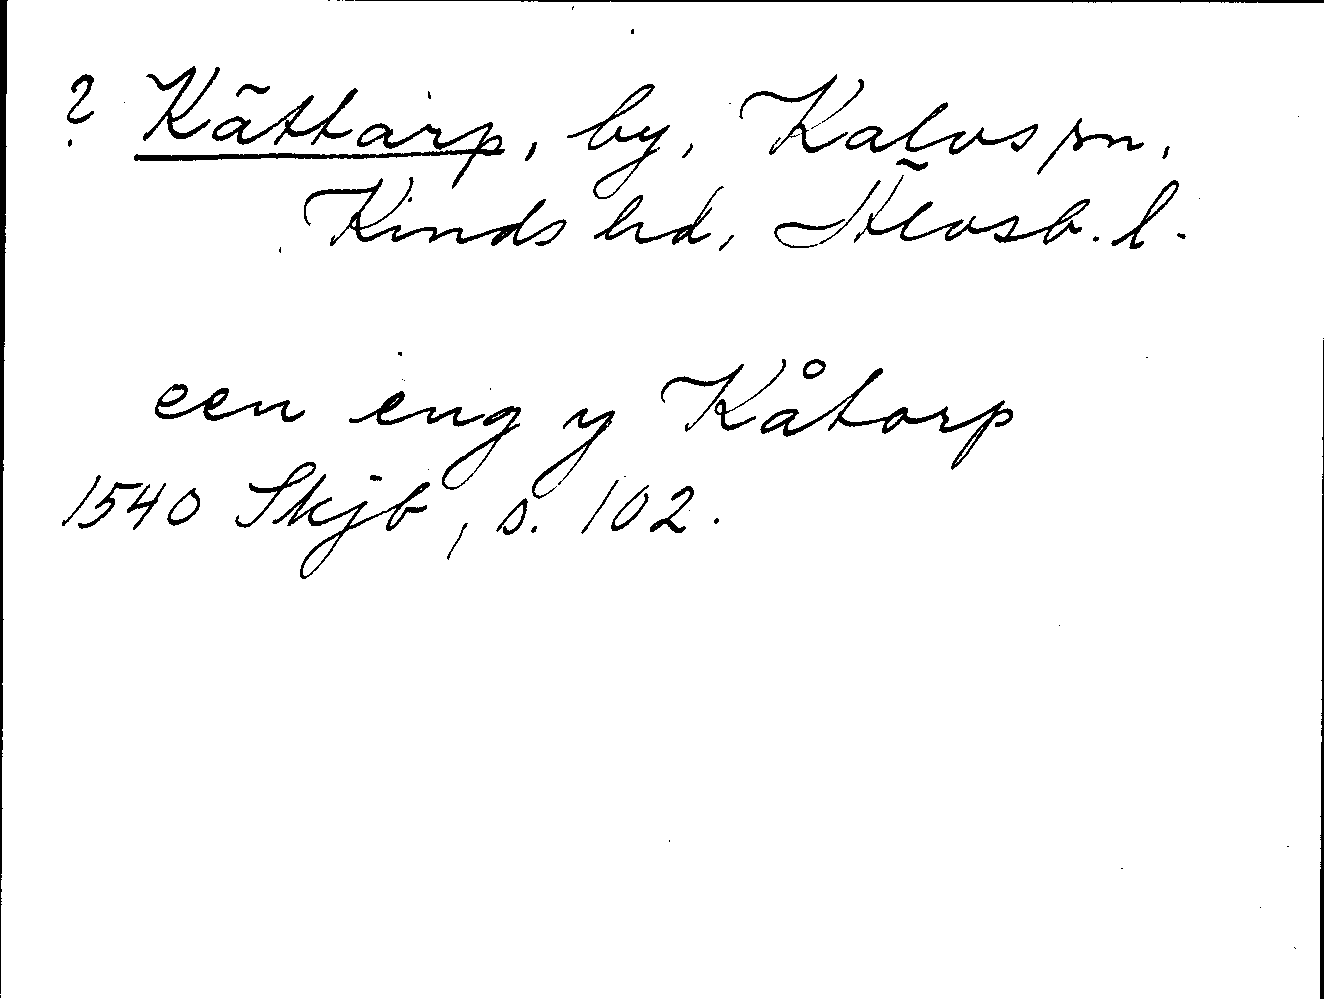 ? Kättarp, by, Kalvs sn,
Kinds hd, Älvsb. l.
een eng y Kåtorp
1540 Skjb, s. 102.